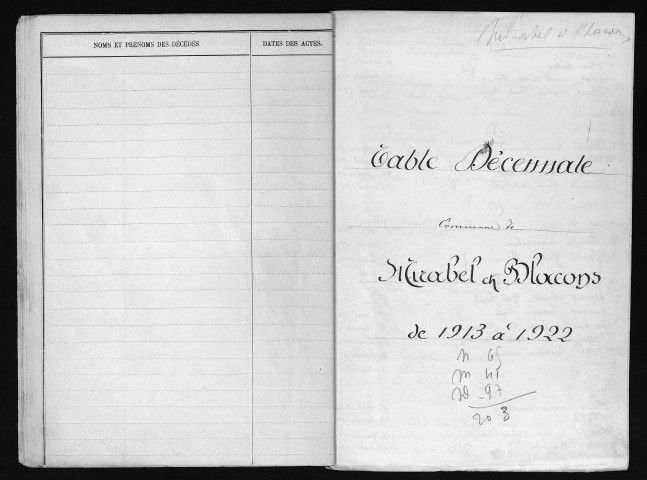 NOMS ET PRÉNOMS DES DÉCÉDÉS
DATES DES ACTES.
Mirabel et Blacons
Table Décennale
Commune de
Mirabel et Blacons
de 1913 à 1922
n 65
m 41
D 97
203